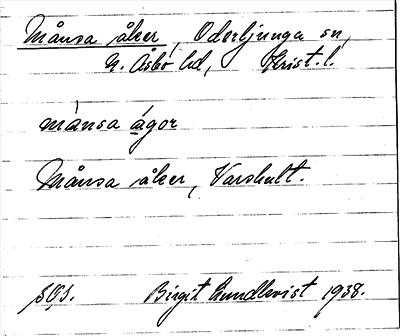 Månsa åker, Oderljunga sn,
N. Åsbo hd, Krist. l.
mànsa ágor
Månsa åker, Varshult.
SOS. Birgit Lundkvist 1938.